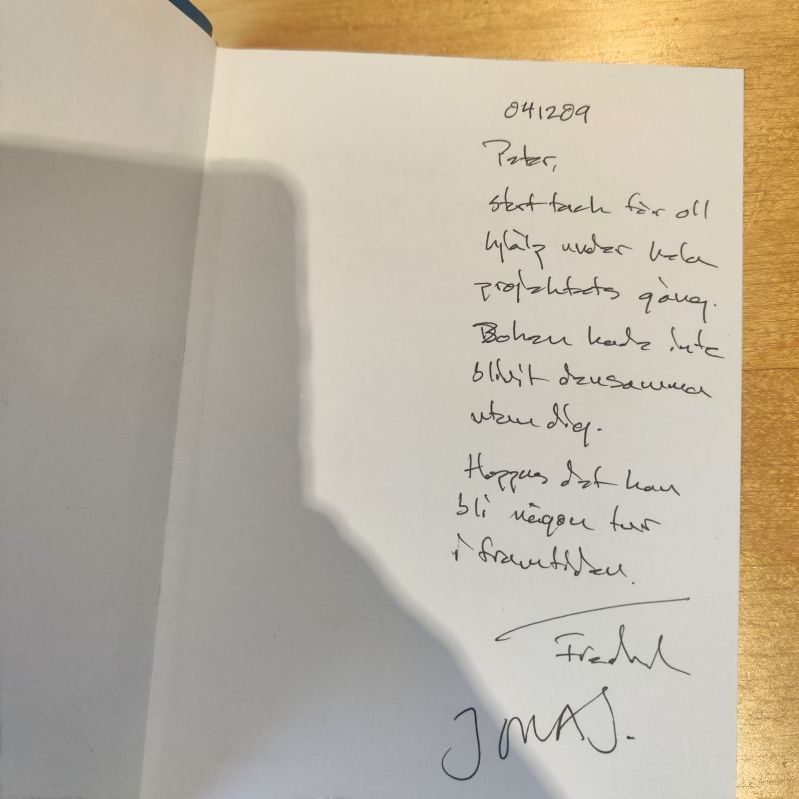 041209
Peter,
stort tack för all
hjälp under hela
projektets gång.
Boken hade inte
blivit densamma
utan dig.
Hoppas det kan
bli någon tur
i framtiden.
Fredrik
JONAS.